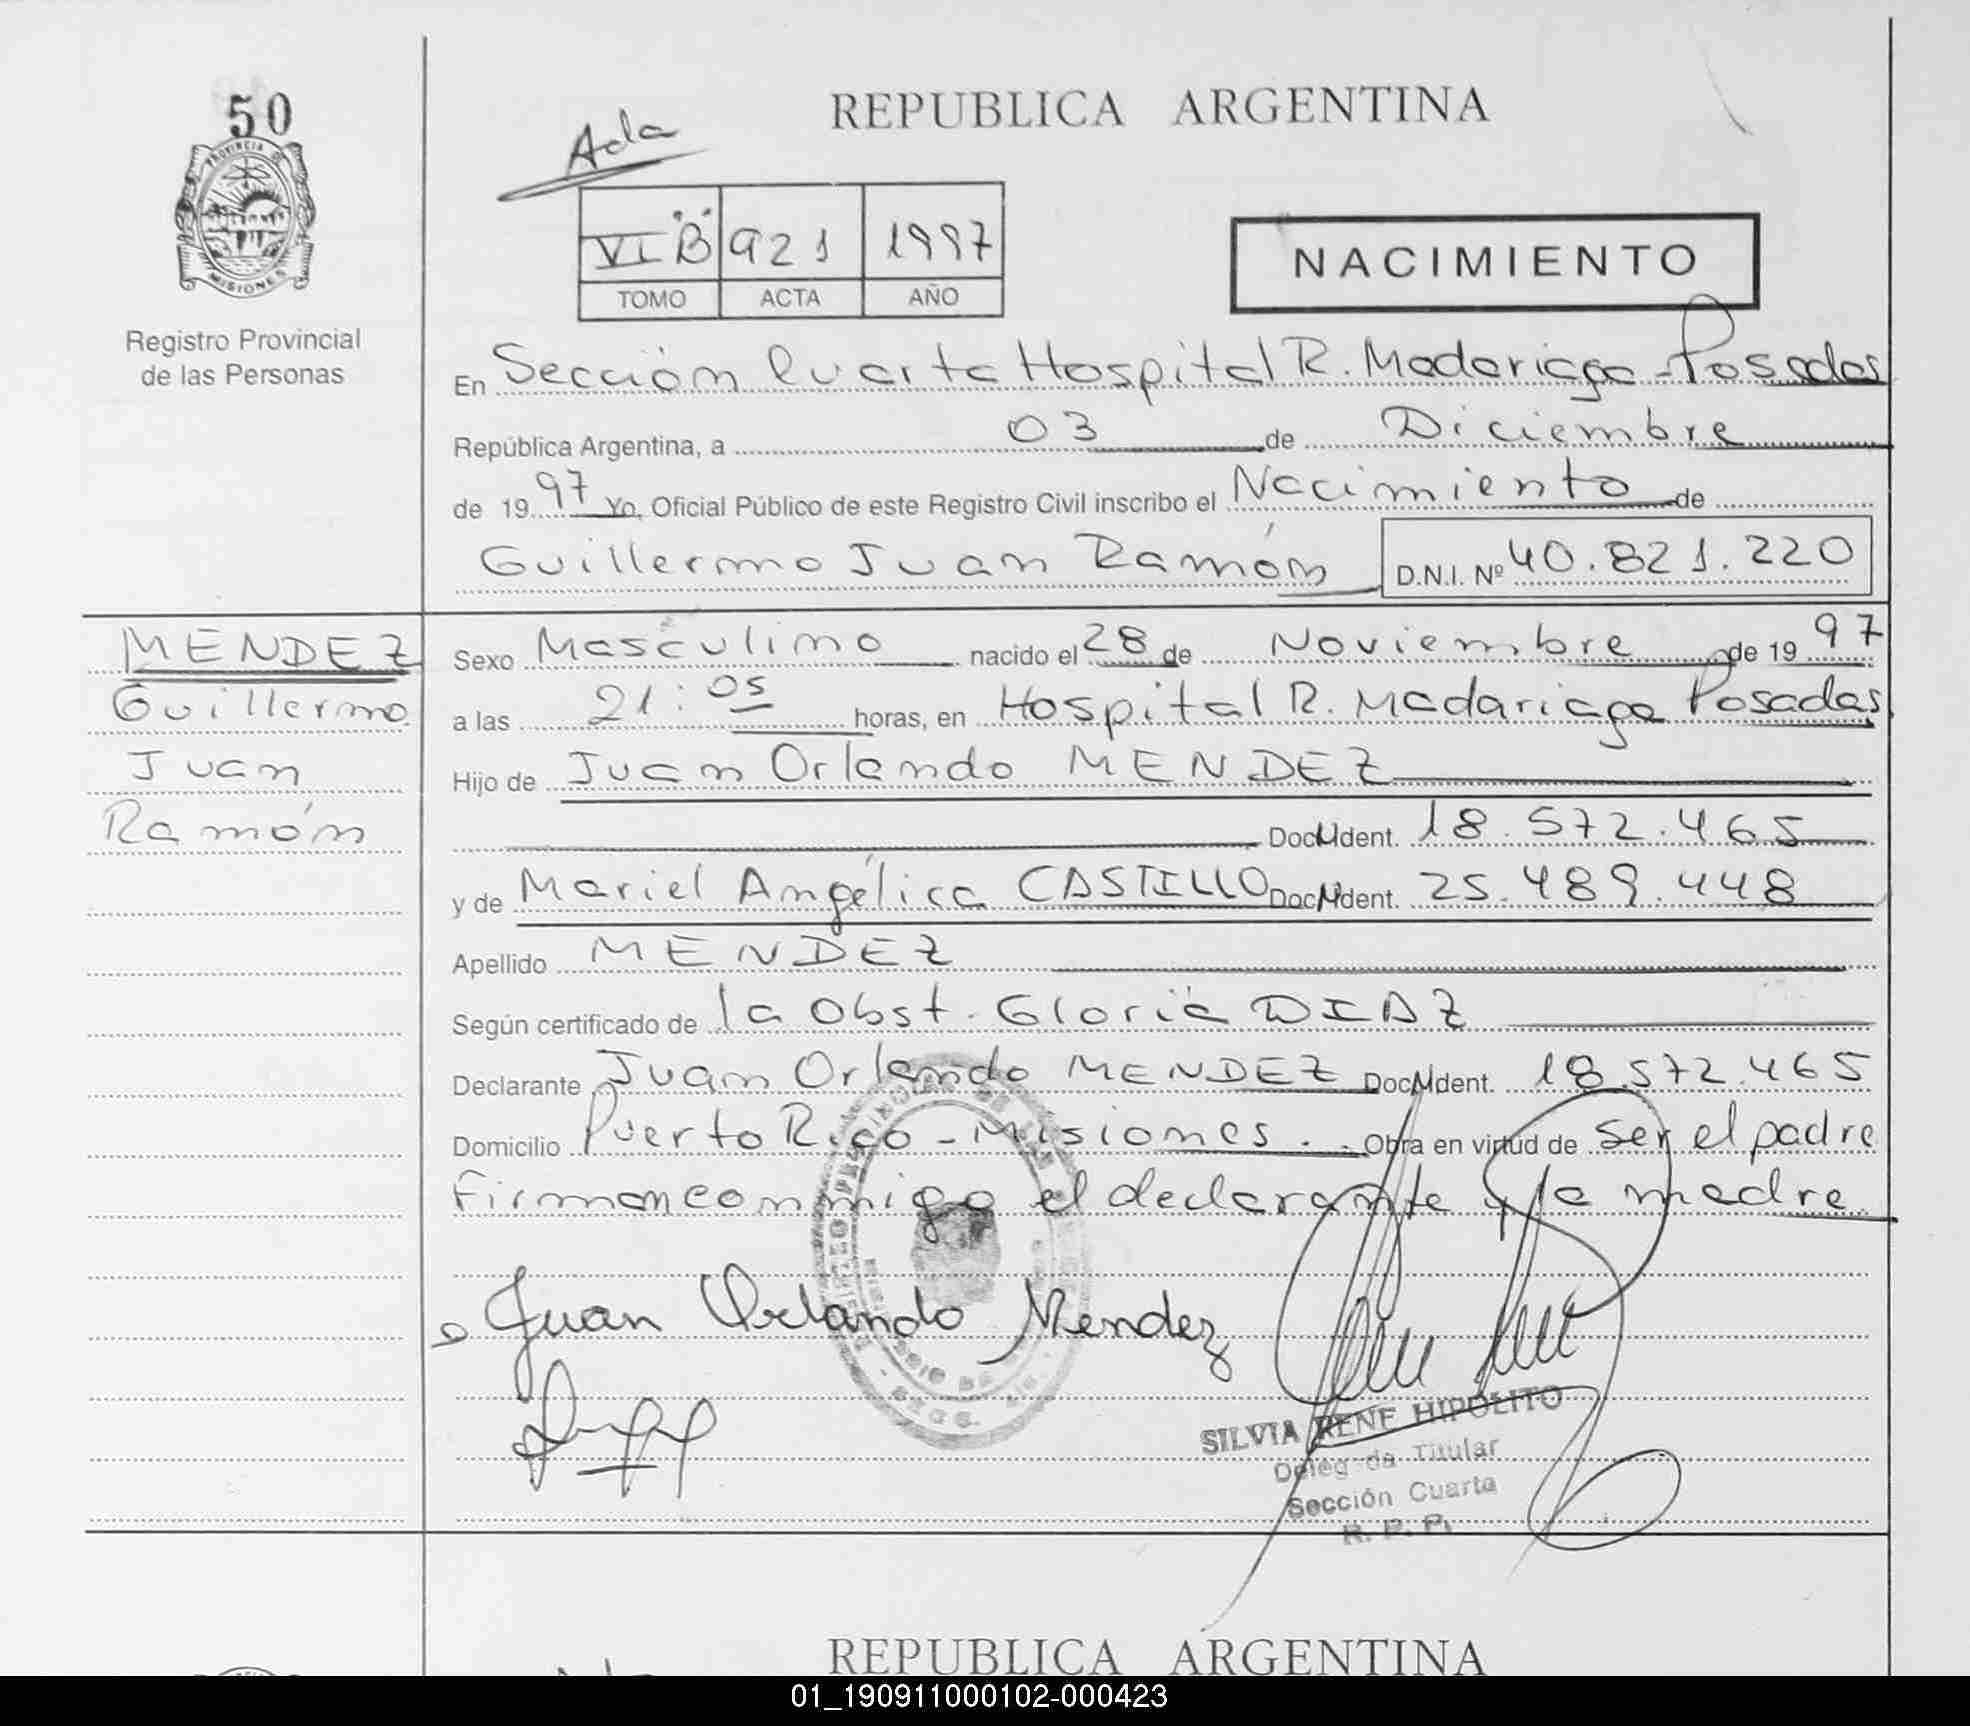 50
PROVINCIA DE
MISIONES
Registro Provincial
de las Personas
REPUBLICA ARGENTINA
Ada
VI B 921 1997
TOMO ACTA AÑO
NACIMIENTO
En Sección Cuarta Hospital R. Madariaga - Posadas
República Argentina, a 03 de Diciembre
de 1997 Yo, Oficial Público de este Registro Civil inscribo el Nacimiento de
Guillermo Juan Ramón D.N.I. Nº 40.821.220
MENDEZ
Guillermo
Juan
Ramón
Sexo Masculino nacido el 28 de Noviembre de 1997
a las 21:05 horas, en Hospital R. Madariaga Posadas
Hijo de Juan Orlando MENDEZ
Doc. Ident. 18.572.465
y de Mariel Angélica CASTILLO Doc. Ident. 25.489.448
Apellido MENDEZ
Según certificado de la Obst. Gloria DIAZ
Declarante Juan Orlando MENDEZ Doc. Ident. 18.572.465
Domicilio Puerto Rico - Misiones. Obra en virtud de ser el padre
Firman conmigo el declarante y la madre
Juan Orlando Mendez
SILVIA RENE HIPOLITO
Delegada Titular
Sección Cuarta
R. P. P.
REPUBLICA ARGENTINA
01_190911000102-000423